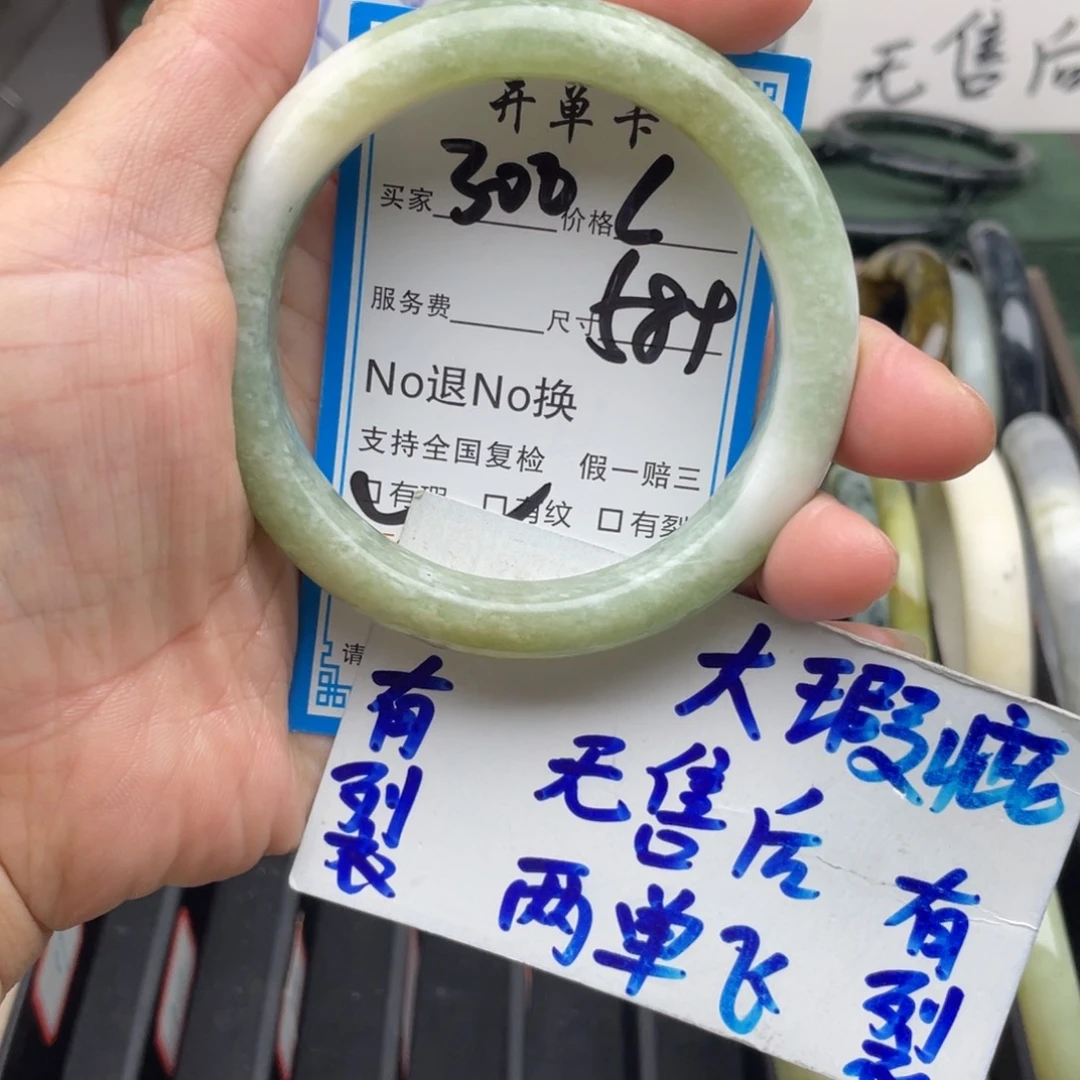 无售后
开单卡
买家 300 价格 L
服务费 尺寸 584
No退No换
支持全国复检 假一赔三
口有瑕 口有纹 口有裂
请
大瑕疵
无售后
两单飞
有裂
有裂